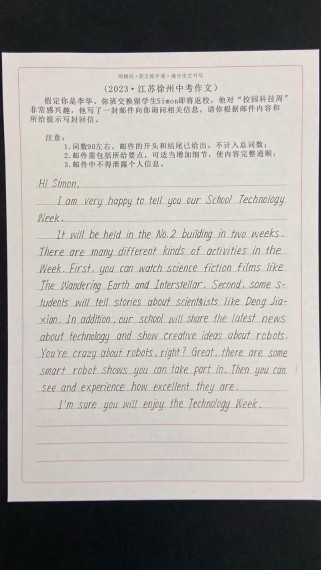 （2023·江苏徐州中考作文）
假定你是李华，你班交换留学生Simon即将返校，他对“校园科技周”
非常感兴趣，他写了一封邮件向你询问相关信息，请你根据邮件内容和
所给提示写封回信。
注意：
1.词数90左右，邮件的开头和结尾已给出，不计入总词数；
2.邮件需包括所给要点，可适当增加细节，使内容完整通顺；
3.邮件中不得泄露个人信息。
Hi Simon,
I am very happy to tell you our School Technology
Week.
It will be held in the No.2 building in two weeks.
There are many different kinds of activities in the
Week. First, you can watch science fiction films like
The Wandering Earth and Interstellar. Second, some s-
tudents will tell stories about scientists like Deng Jia-
xian. In addition, our school will share the latest news
about technology and show creative ideas about robots.
You're crazy about robots, right? Great, there are some
smart robot shows you can take part in. Then you can
see and experience how excellent they are.
I'm sure you will enjoy the Technology Week.